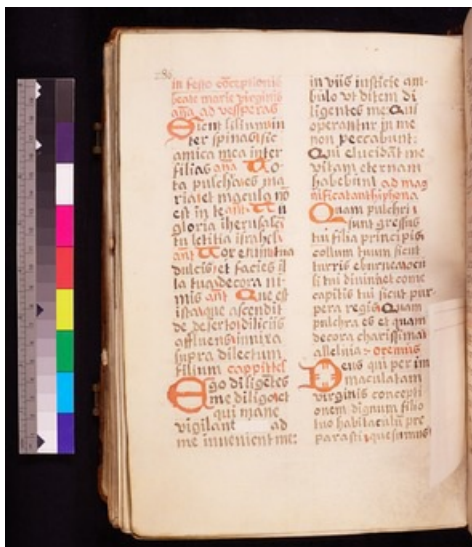 286
in festo cõceptionis
beate marie virginis
añã ad vesperas
Sicut lilium in
ter spinas sic
amica mea inter
filias añã To
ta pulchra es ma
ria et macula nõ
est in te añt Tu
gloria iherusalẽ
tu letitia israhel
ant Vox enim tua
dulcis et facies
tua decora ni
mis añt Que est
ista que ascendit
de deserto diliciis
affluens innixa
supra dilectum
filium cappitel
Ego diligẽtes
me diligo et
qui mane
vigilant ad
me invenient me:
in viis iusticie am
bulo vt ditem di
ligentes me: Qui
operantur in me
non peccabunt:
Qui elucidãt me
vitam eternam
habebunt ad mag
nificat anthiphona
Quam pulchri
sunt gressus
tui filia principis
collum tuum sicut
turris eburnea
tui divini et come
capitis tui sicut pur
pera regis Quam
pulchra es et quam
decora charissima
alleluia oremus
Deus qui per im
maculatam
virginis concepti
onem dignum filio
tuo habitaculũ pre
parasti quesumus